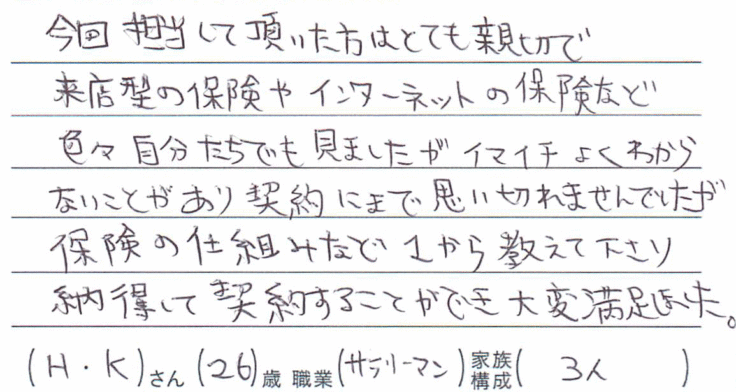 今回担当して頂いた方はとても親切で
来店型の保険やインターネットの保険など
色々自分たちでも見ましたがイマイチよくわから
ないことがあり契約にまで思い切れませんでしたが
保険の仕組みなど1から教えて下さり
納得して契約することができ大変満足しました。
(H・K)さん (26)歳 職業(サラリーマン) 家族構成( 3人 )